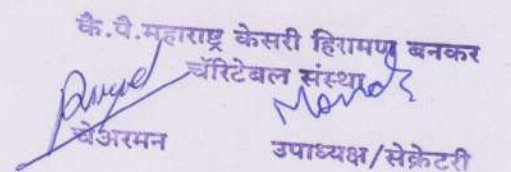 कै.पै.महाराष्ट्र केसरी हिरामण बनकर
चॅरिटेबल संस्था
चेअरमन उपाध्यक्ष/सेक्रेटरी